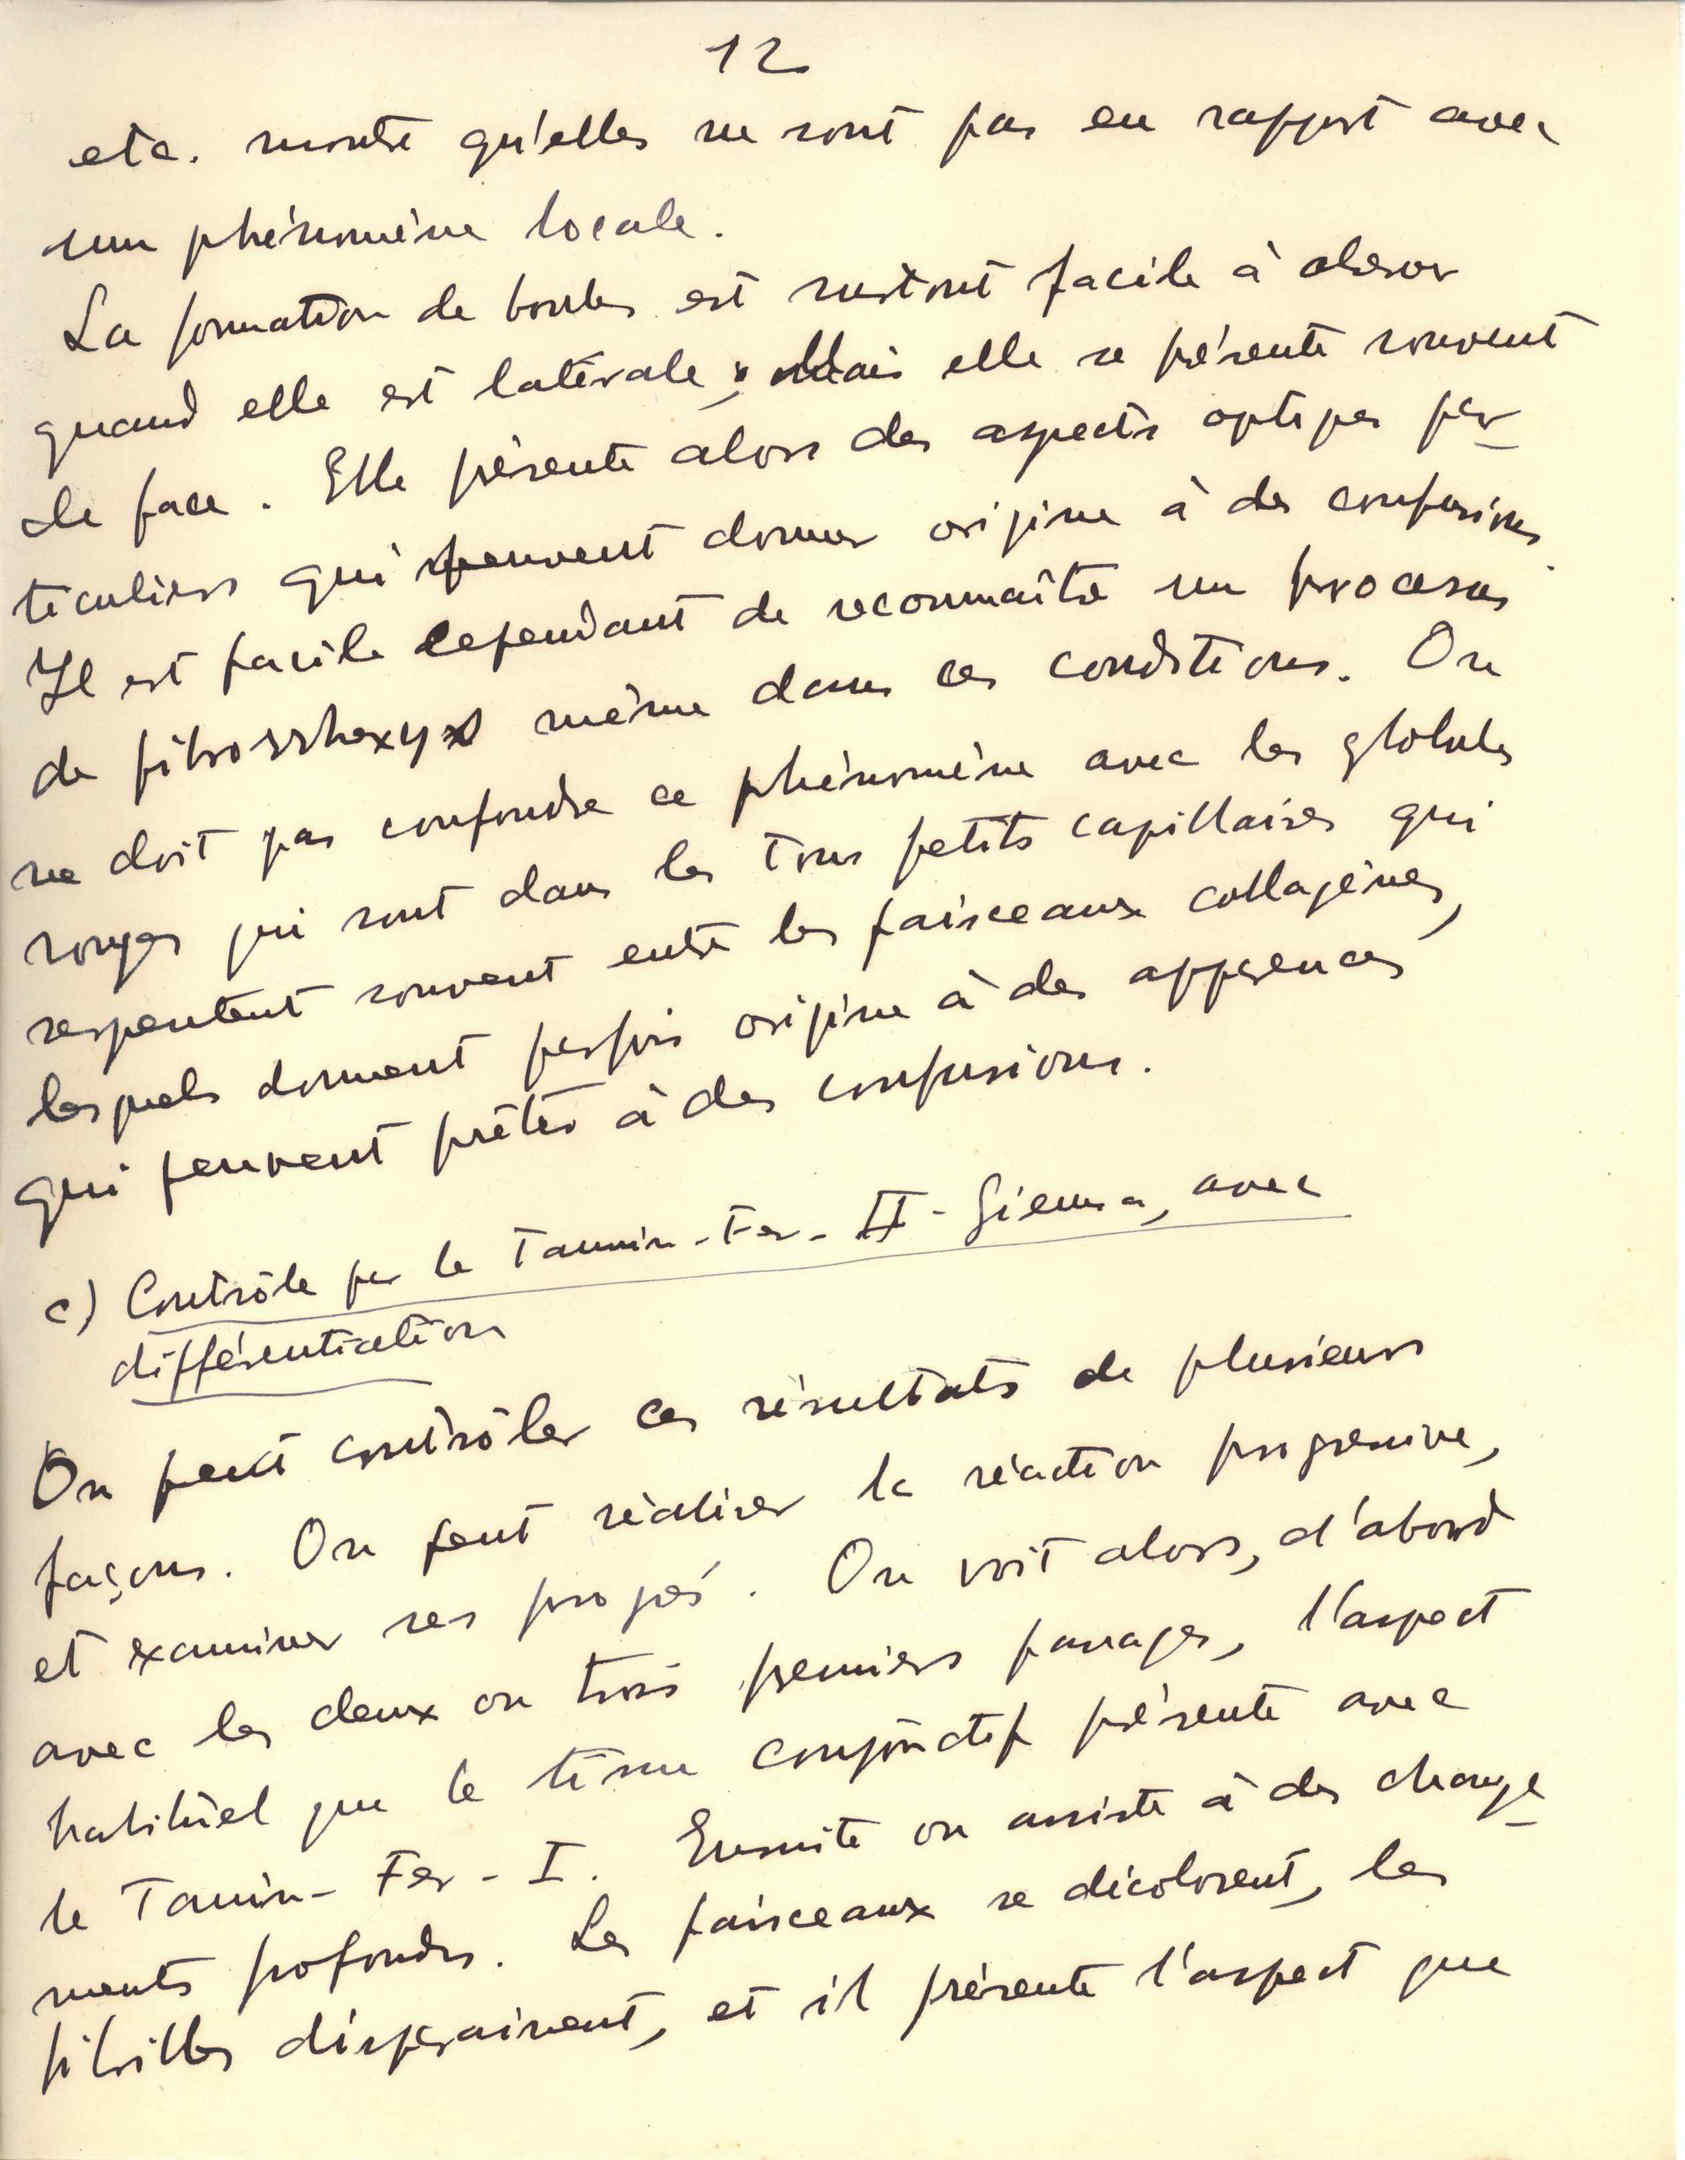 12
etc. montre qu'elles ne sont pas en rapport avec
un phénomène locale.
La formation de boules est surtout facile à obserer
quand elle est latérale; Mais elle se présente souvent
de face. Elle présente alors des aspects optiques par_
ticuliers qui peuvent donner origine à des confusions.
Il est facile cependant de reconnaître un procesus
de fibrorrhexys même dans ces conditions. On
ne doit pas confondre ce phénomène avec les globules
rouges qui sont dans les tous petits capillaires qui
serpentent souvent entre les faisceaux collagènes,
lesquels donnent parfois origine à des apparences
qui peuvent prêter à des confusions.
c) Contrôle par le Tannin-Fer-II-Giemsa, avec
différentiation
On peut contrôler ces résultats de plusieurs
façons. On peut réaliser la réaction progressive,
et examiner ses progrés. On voit alors, d'abord
avec les deux ou trois premiers passages, l'aspect
habitüel que le tissu conjonctif présente avec
le Tannin-Fer-I. Ensuite on assiste à des change_
ments profonds. Les faisceaux se décolorent, les
fibrilles disparaissent, et il présente l'aspect que